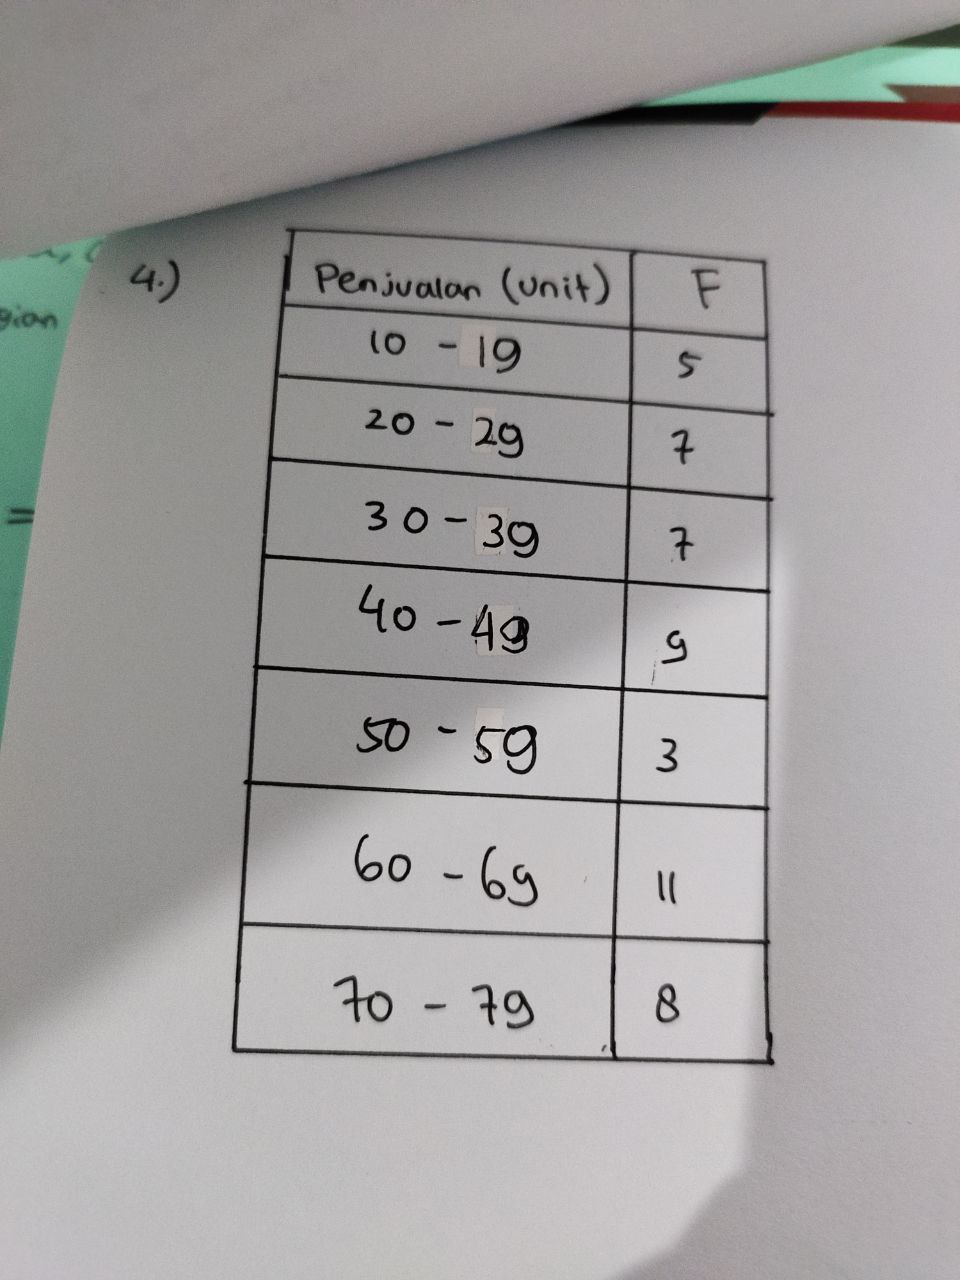 gian
=
4.)
Penjualan (unit) F
10 - 19 5
20 - 29 7
30 - 39 7
40 - 49 9
50 - 59 3
60 - 69 11
70 - 79 8